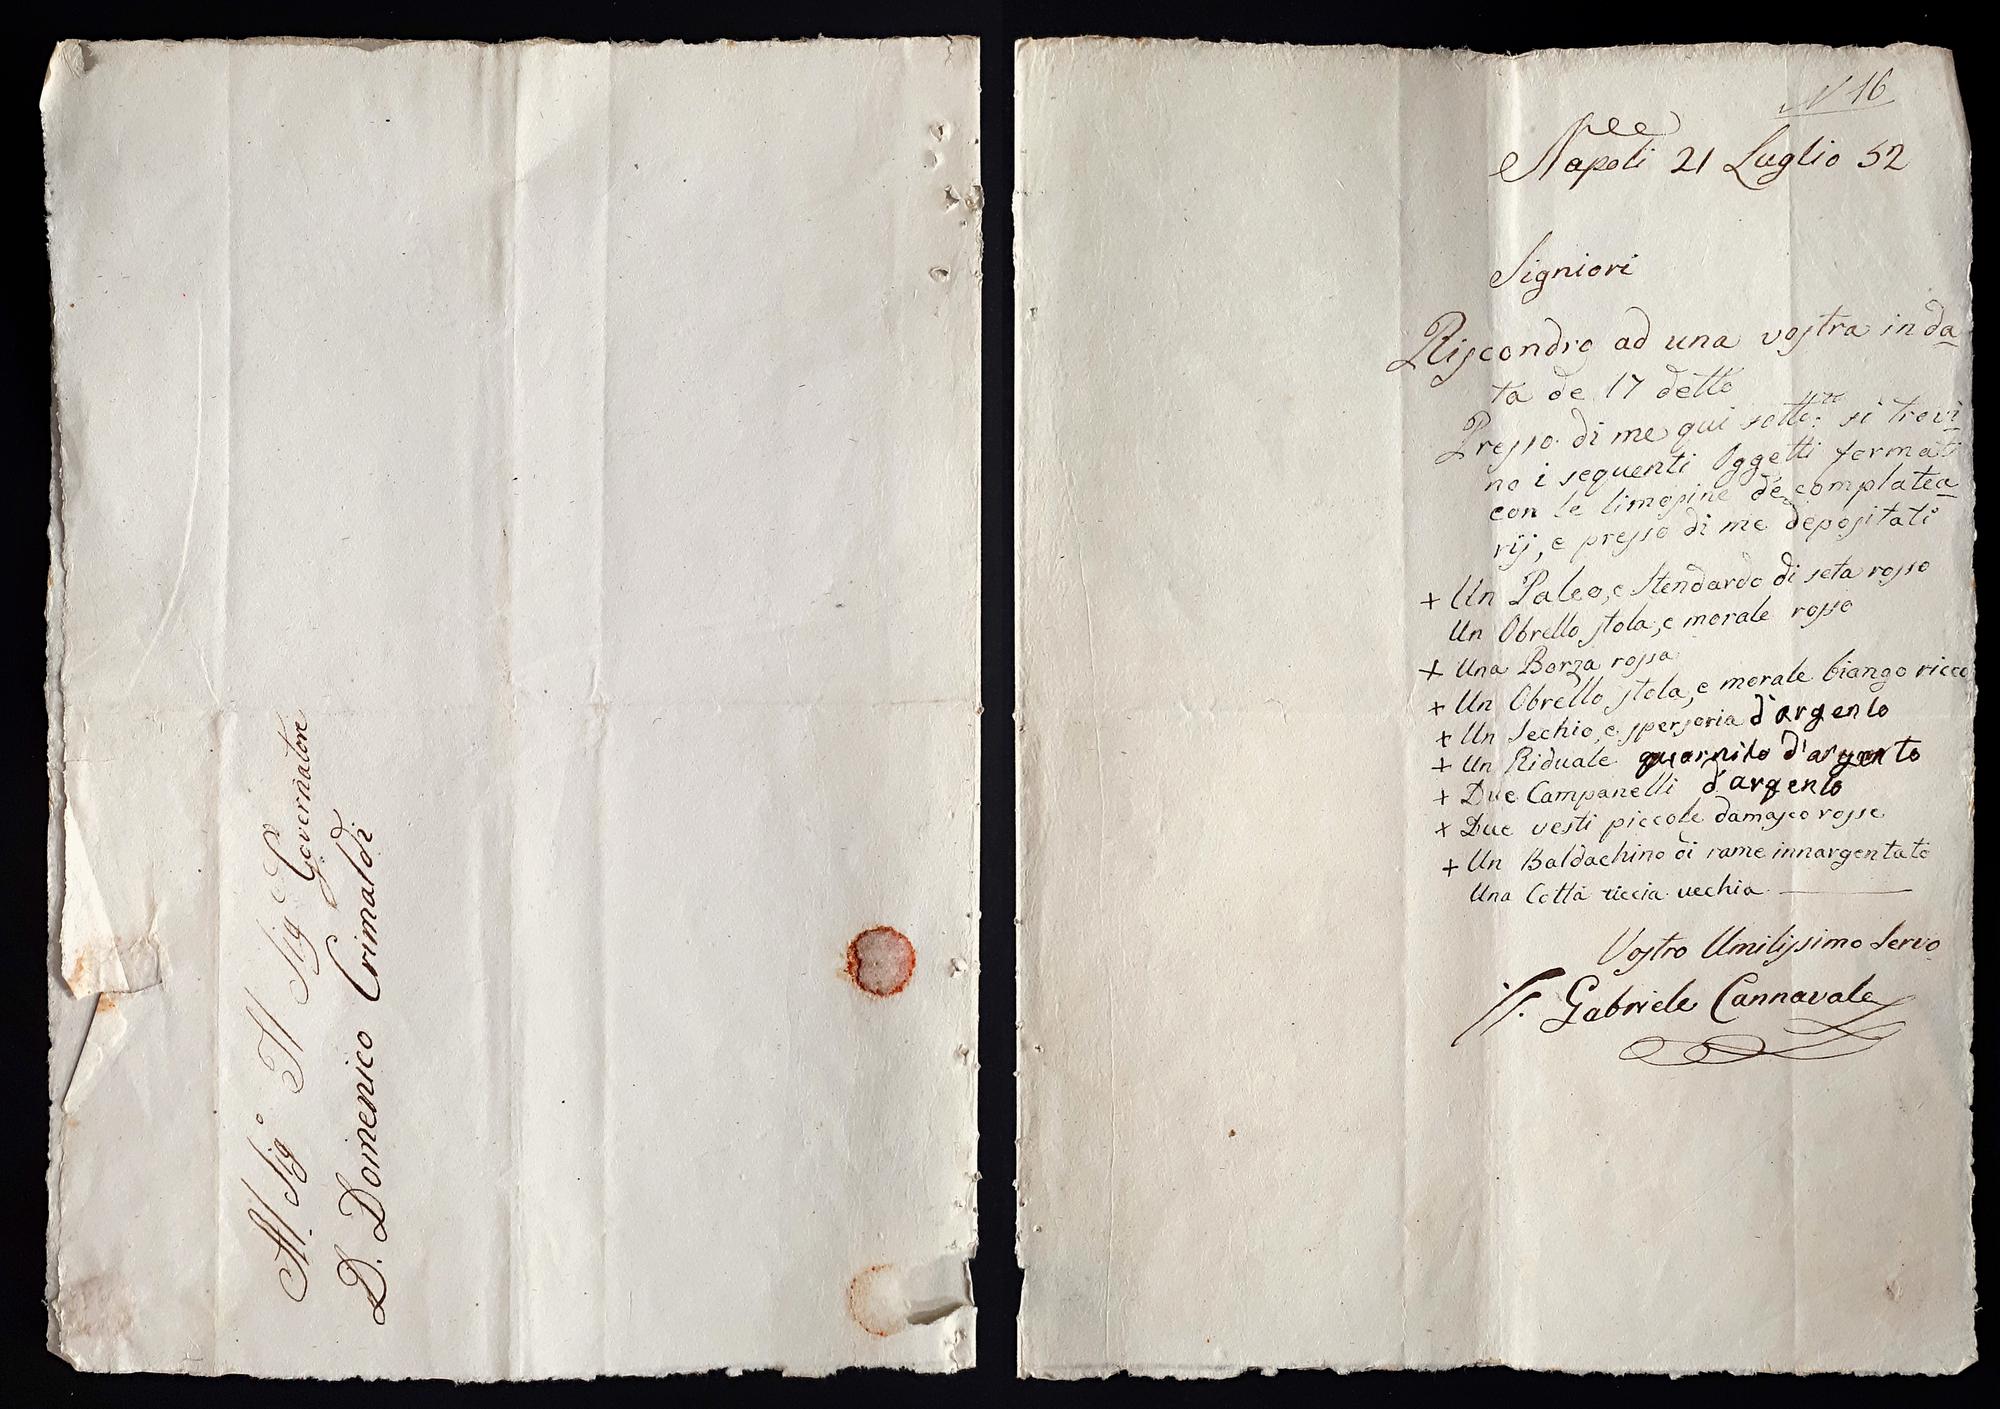 Al Sig.o Il Sig.e Governatore
D. Domenico Crimaldi
N 16
Napoli 21 Luglio 52
Signiori
Riscondro ad una vostra in da
ta de 17 detto
Presso di me qui sotto: si trovi
no i sequenti Oggetti formati
con le limosine de complatea
rij, e presso di me depositati
+ Un Paleo, e Stendardo di seta rosso
Un Obrello stola, e morale rosso
+ Una Borza rossa
+ Un Obrello stola, e morale biango ricco
+ Un Sechio, e spersoria d'argento
+ Un Riduale guarnito d'argento
+ Due Campanelli d'argento
+ Due vesti piccole damasco rosse
+ Un Baldachino di rame innargentato
Una Cotta riccia vechia
Vostro Umilissimo Servo
F. Gabriele Cannavale